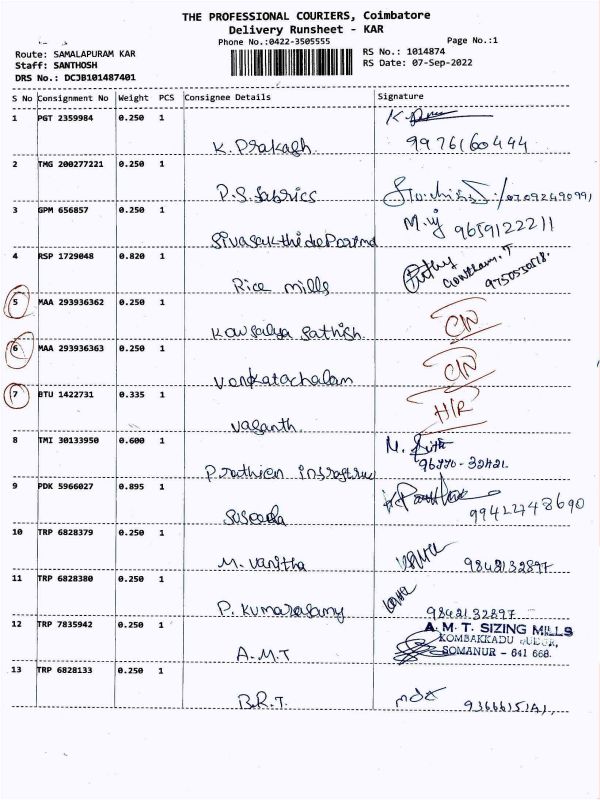 THE PROFESSIONAL COURIERS, Coimbatore
Delivery Runsheet - KAR
Phone No.:0422-3505555
Page No.:1
Route: SAMALAPURAM KAR
Staff: SANTHOSH
DRS No.: DCJB101487401
RS No.: 1014874
RS Date: 07-Sep-2022
S No Consignment No Weight PCS Consignee Details Signature
1 PGT 2359984 0.250 1
K. Prakash 9976160444
2 TMG 200277221 0.250 1
P.S. fabrics
3 GPM 656857 0.250 1
9659122211
4 RSP 1729048 0.820 1
Rice mills Gowtham. T
5 MAA 293936362 0.250 1
Kowsalya Sathish
6 MAA 293936363 0.250 1
Venkatachalam
7 BTU 1422731 0.335 1 H/R
Vasanth
8 TMI 30133950 0.600 1
9 PDK 5966027 0.895 1
9942748690
10 TRP 6828379 0.250 1
M. Vanitha 9842132897
11 TRP 6828380 0.250 1
P. Kumarasamy 9842132897
12 TRP 7835942 0.250 1 A. M. T. SIZING MILLS
KOMBAKKADU
A.M.T SOMANUR - 641 668.
13 TRP 6828133 0.250 1
B.R.T.